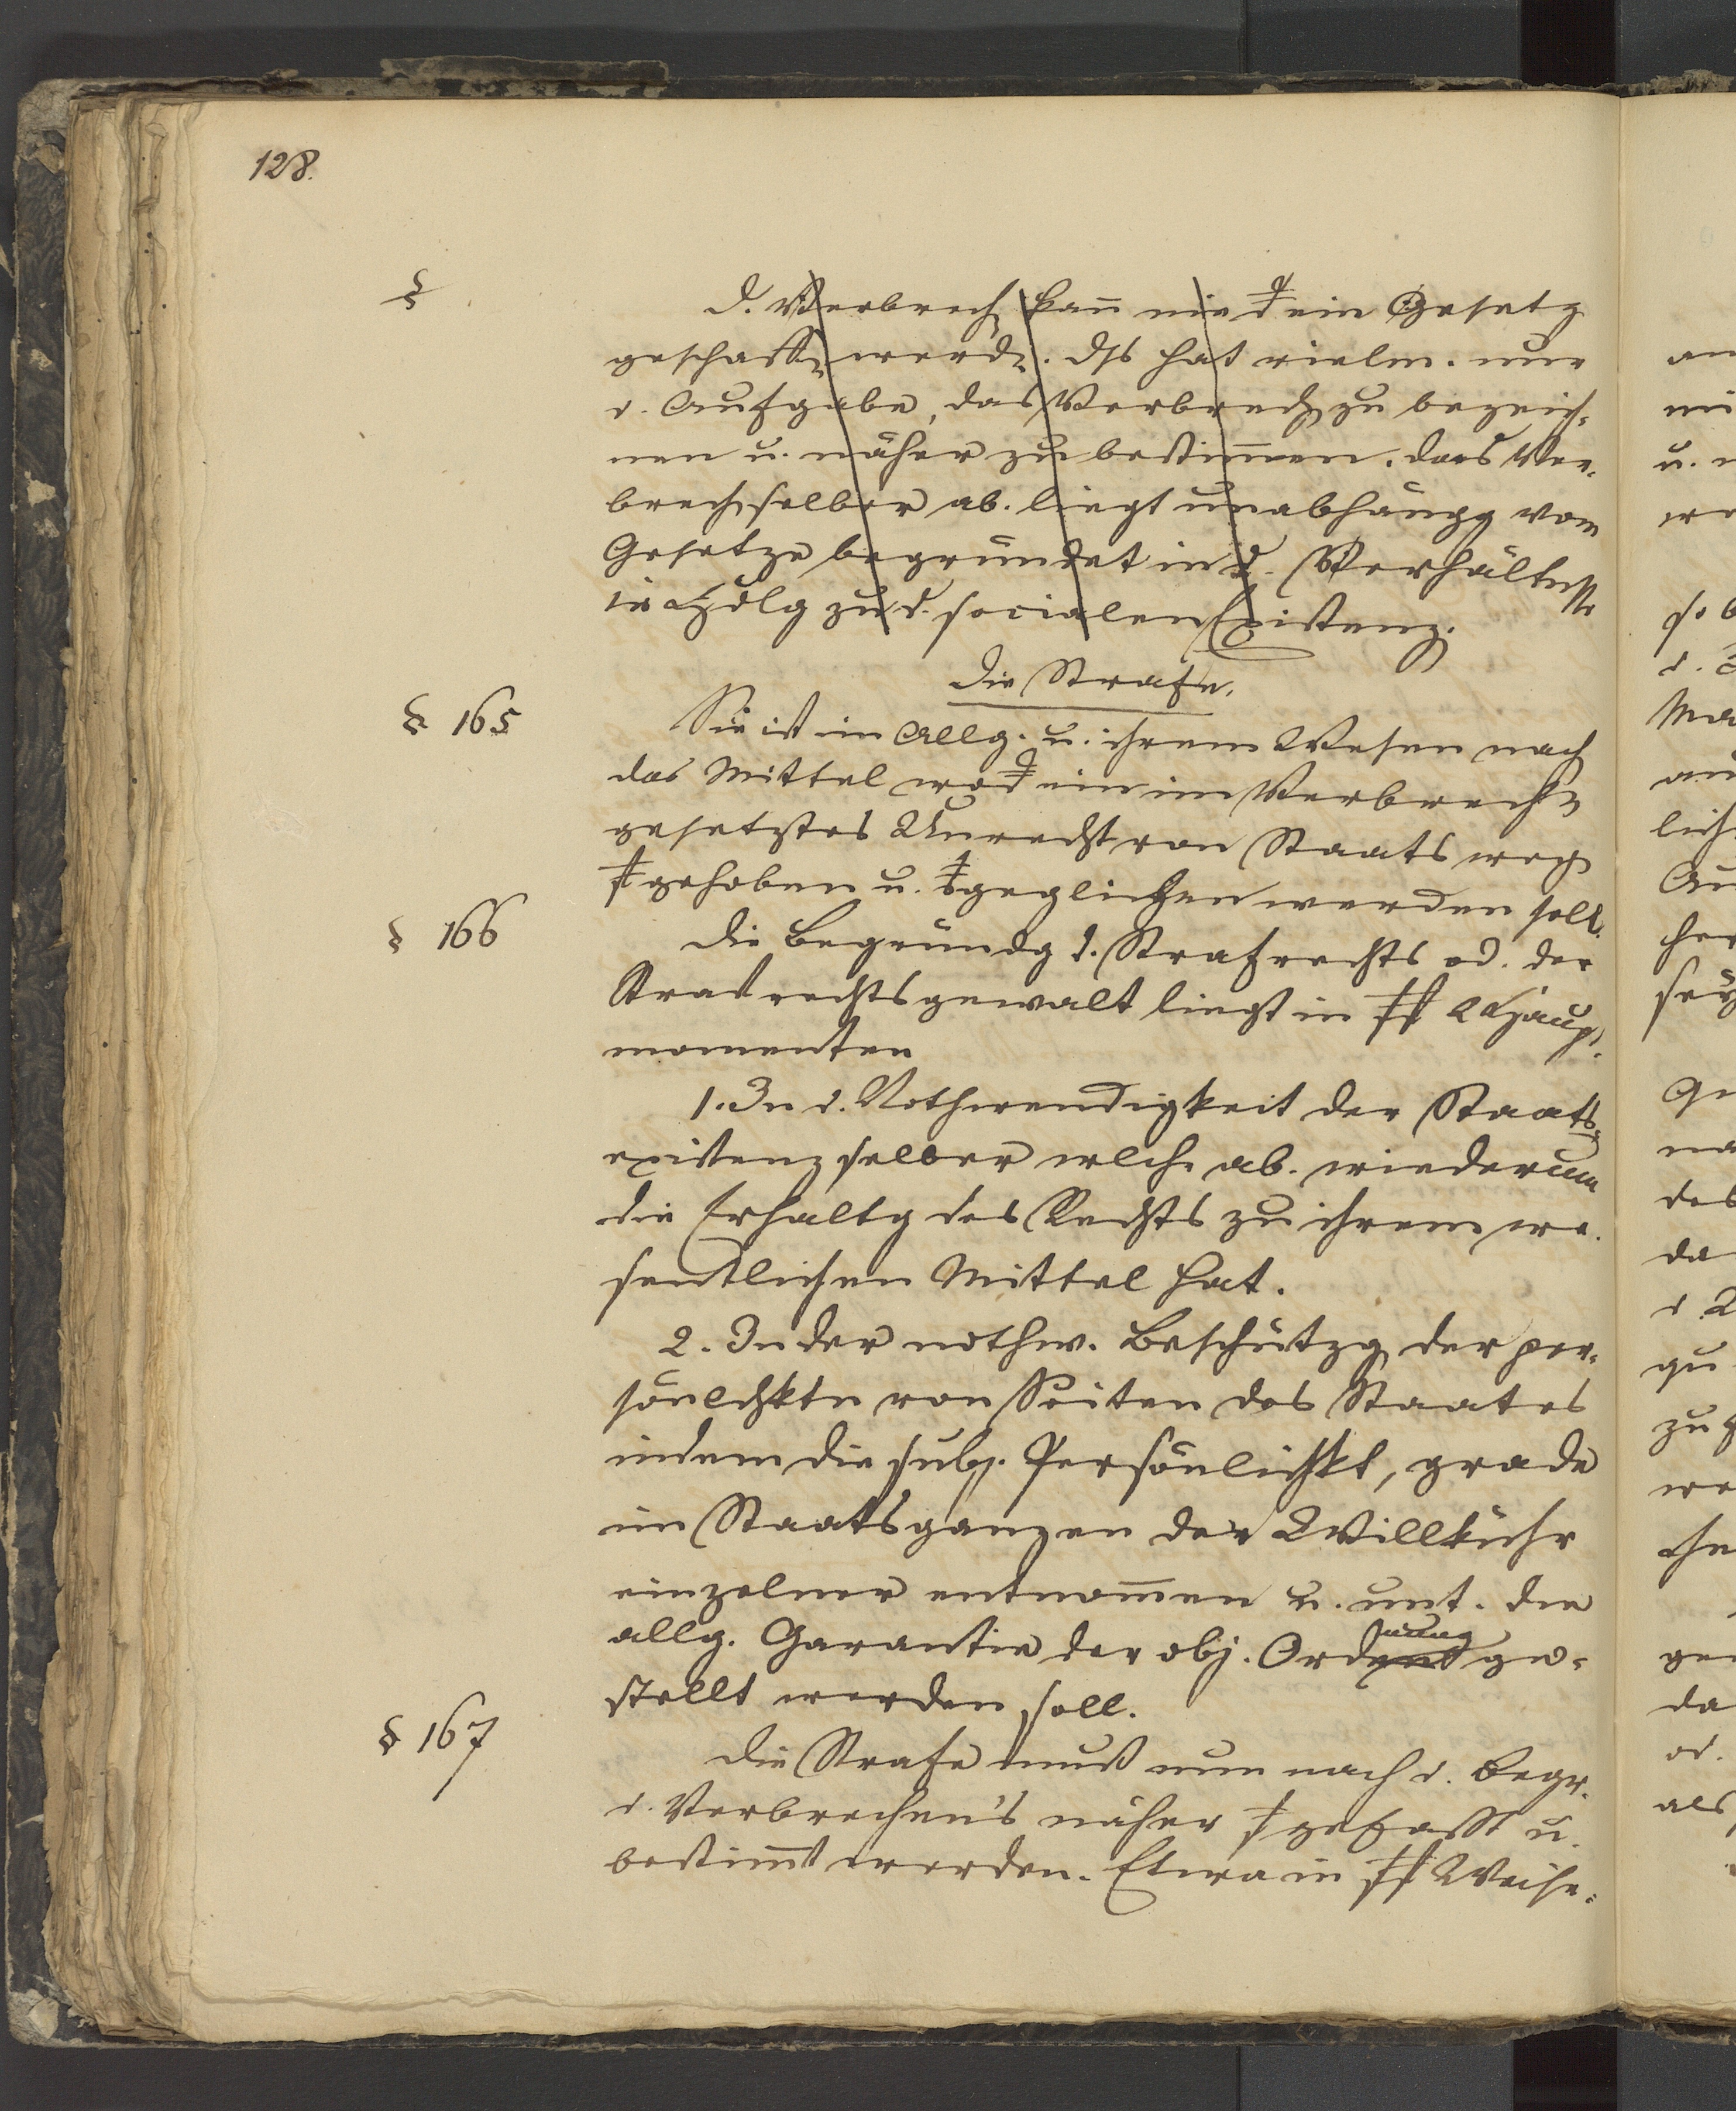 128.
§
D. Verbrech kañ nie d ein Gesetz
geschaff werd. Dss hat vielm. nur
d. Aufgabe, das Verbrech zu bezeich-
nen u. näher zu bestim̄en. das Ver-
brech selber ab. liegt unabhängg vom
Gesetze begründet in d. Verhältnisse
der Hdlg zu d. socialen Existenz.
Die Strafe.
§ 165
Sie ist im Allg. u. ihrem Wesen nach
das Mittel wod ein im Verbrech
gesetztes Unrecht von Staats weg
gehoben u. geglichen werden soll.
§ 166
Die Begründg d. Strafrechts od. der
Strafrechtsgewalt liegt in 2 Haupt-
momenten
1. In d. Nothwendigkeit der Staats-
existenz selber wlch. ab. wiederum
die Erhaltg des Rechts zu ihrem we-
sentlichen Mittel hat.
2. In der nothw. Beschützg der per-
sönlchktn von Seiten des Staates
indem die subj. Persönlichkt, grade
im Staatsganzen der Willkühr
einzelner entnom̄en u. unt. die
allg. Garantie der obj. Ordnung ge-
stellt werden soll.
§ 167
Die Strafe muß nun nach d. Begr.
d. Verbrechen's näher gefasst u.
bestim̄t werden. Etwa in Weise: